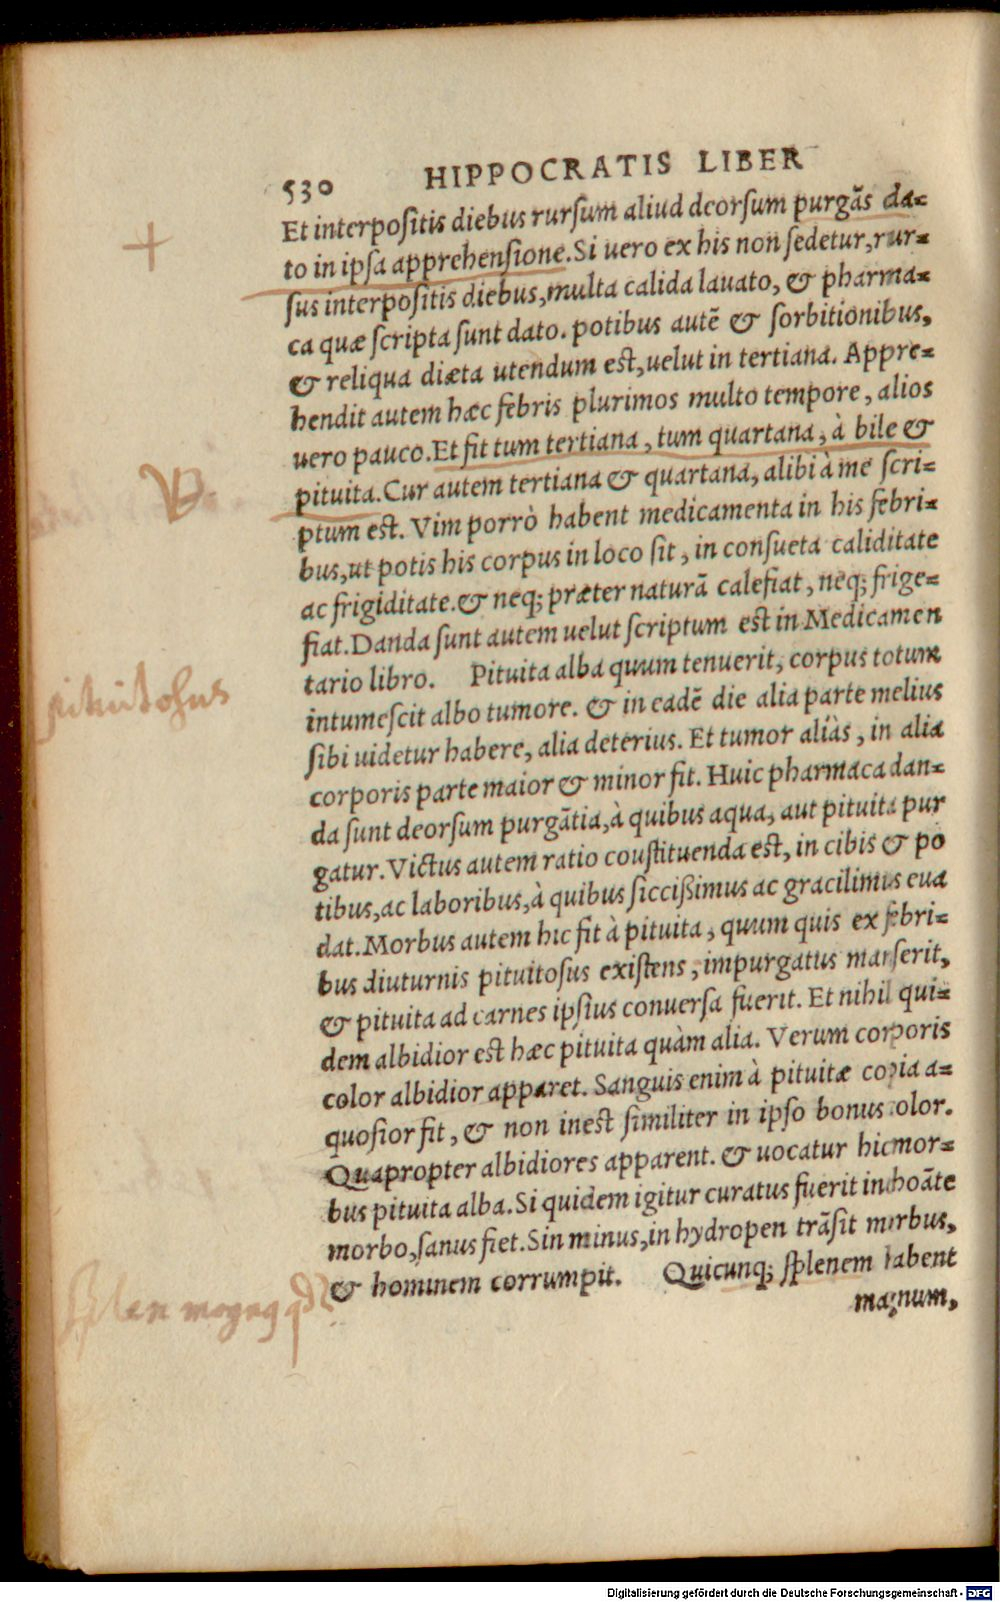 530 HIPPOCRATIS LIBER
Et interpositis diebus rursum aliud deorsum purgãs da=
to in ipsa apprehensione. Si uero ex his non sedetur, rur=
sus interpositis diebus, multa calida lauato, & pharma=
ca quæ scripta sunt dato. potibus autẽ & sorbitionibus,
& reliqua diæta utendum est, uelut in tertiana. Appre=
hendit autem hæc febris plurimos multo tempore, alios
uero pauco. Et fit tum tertiana, tum quartana, à bile &
pituita. Cur autem tertiana & quartana, alibi à me scri=
ptum est. Vim porrò habent medicamenta in his febri=
bus, ut potis his corpus in loco sit, in consueta caliditate
ac frigiditate. & neq; præter naturã calefiat, neq; frige=
fiat. Danda sunt autem uelut scriptum est in Medicamen
tario libro. Pituita alba quum tenuerit, corpus totum
pituitosus
intumescit albo tumore. & in eadẽ die alia parte melius
sibi uidetur habere, alia deterius. Et tumor aliàs, in alia
corporis parte maior & minor fit. Huic pharmaca dan=
da sunt deorsum purgãtia, à quibus aqua, aut pituita pur
gatur. Victus autem ratio coustituenda est, in cibis & po
tibus, ac laboribus, à quibus siccißimus ac gracilimus eua
dat. Morbus autem hic fit à pituita, quum quis ex febri=
bus diuturnis pituitosus existens, impurgatus manserit,
& pituita ad carnes ipsius conuersa fuerit. Et nihil qui=
dem albidior est hæc pituita quàm alia. Verum corporis
color albidior apparet. Sanguis enim à pituitæ copia a=
quosior fit, & non inest similiter in ipso bonus color.
Quapropter albidiores apparent. & uocatur hic mor=
bus pituita alba. Si quidem igitur curatus fuerit inchoãte
morbo, sanus fiet. Sin minus, in hydropen trãsit morbus,
& hominem corrumpit. Quicunq; splenem habent
magnum,
Splen
Digitalisierung gefördert durch die Deutsche Forschungsgemeinschaft - DFG